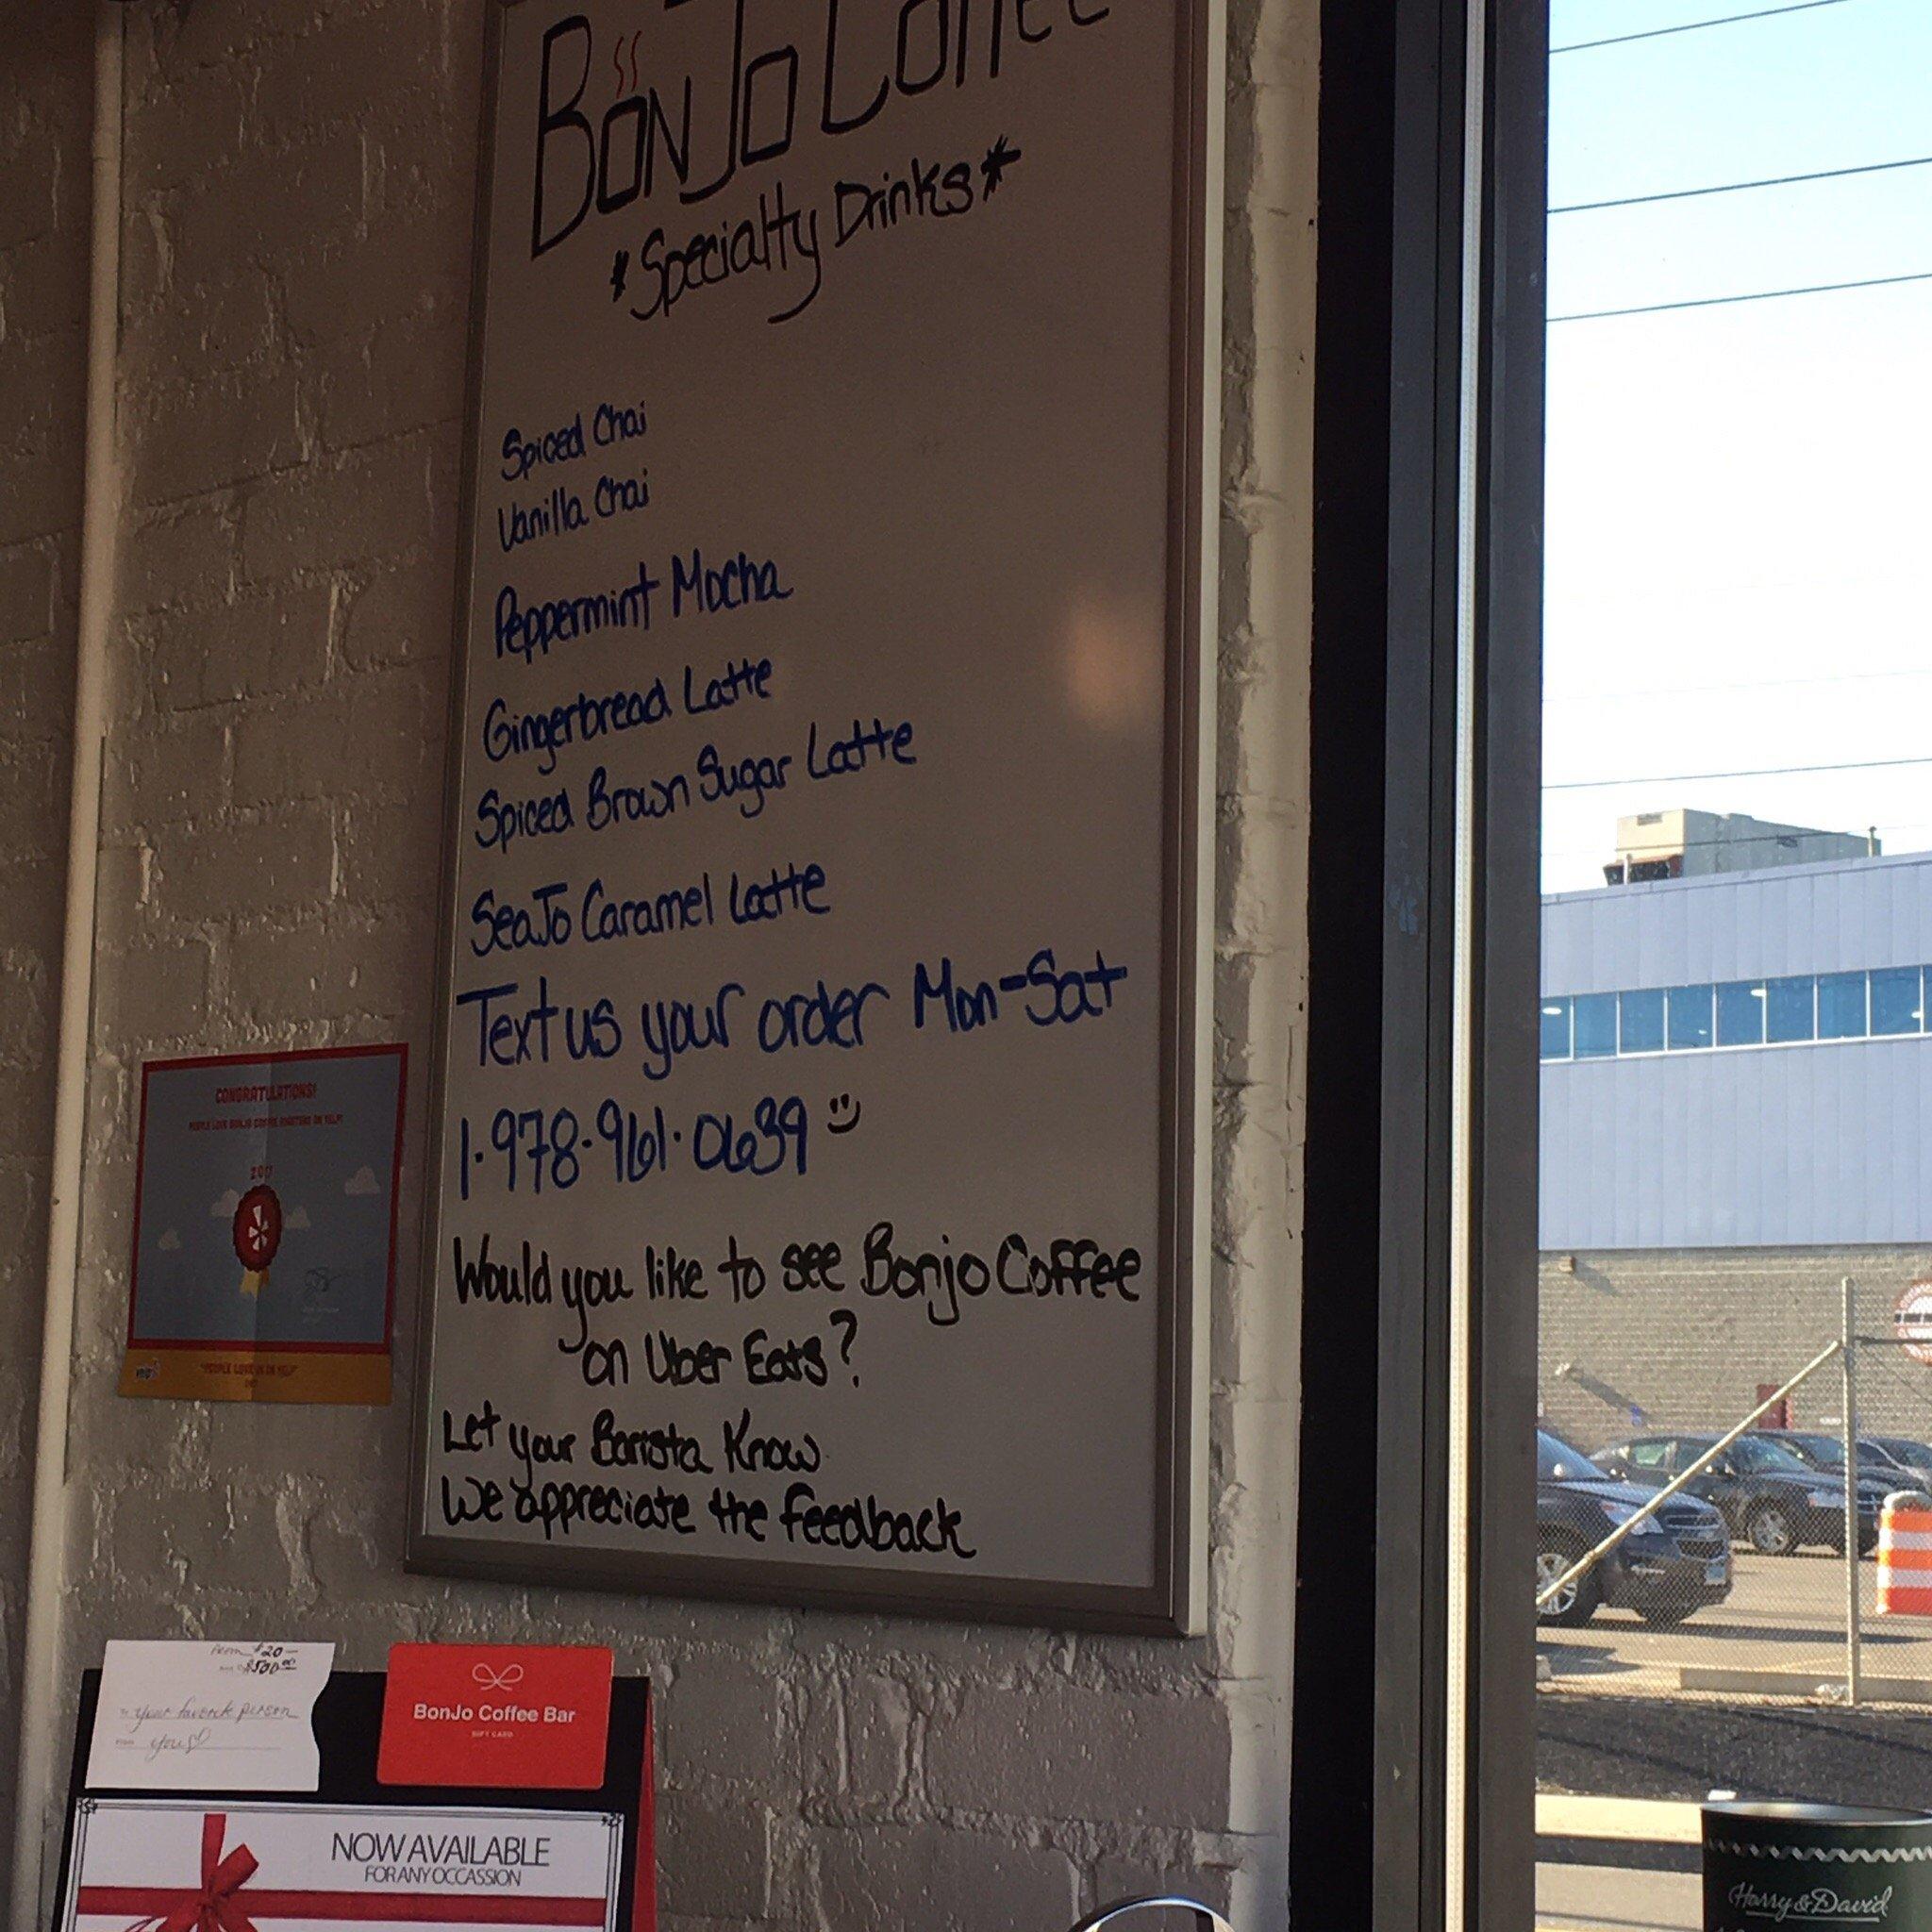 BonJo Coffee
*Specialty Drinks*
Spiced Chai
Vanilla Chai
Peppermint Mocha
Gingerbread Latte
Spiced Brown Sugar Latte
SeaJo Caramel Latte
Text us your order Mon-Sat
1·978·961·0639
Would you like to see Bonjo Coffee
on Uber Eats?
Let your Barista Know
We appreciate the feedback
CONGRATULATIONS!
PEOPLE LOVE BONJO COFFEE ROASTERS ON YELP!
2017
"PEOPLE LOVE US ON YELP"
$20-
$500.00
your favorite person
you
BonJo Coffee Bar
GIFT CARD
NOW AVAILABLE
FOR ANY OCCASSION
Harry & David